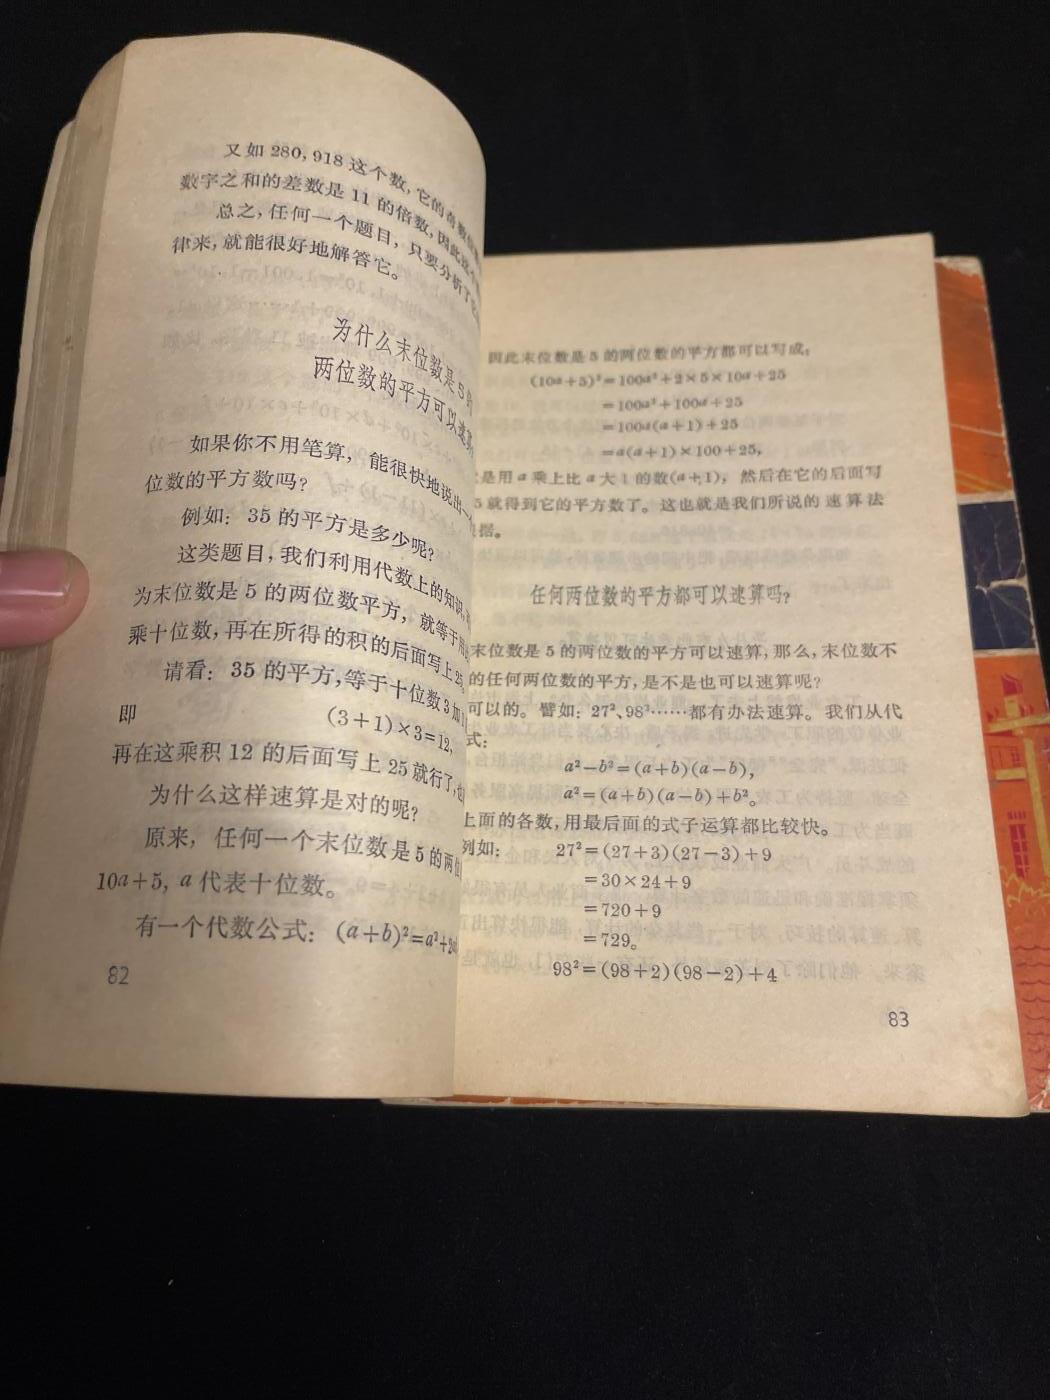 又如 280,918 这个数,它的奇数
数字之和的差数是 11 的倍数,因此这个
总之,任何一个题目,只要分析了它
律来,就能很好地解答它。
为什么末位数是5的
两位数的平方可以速算
如果你不用笔算,能很快地说出一
位数的平方数吗?
例如:35 的平方是多少呢?
这类题目,我们利用代数上的知识,
为末位数是 5 的两位数平方,就等于用
乘十位数,再在所得的积的后面写上25。
请看:35 的平方,等于十位数3加1
即 (3+1)×3=12,
再在这乘积 12 的后面写上 25就行了,也
为什么这样速算是对的呢?
原来,任何一个末位数是5的两位
10a+5, a 代表十位数。
有一个代数公式:(a+b)²=a²+2a
82
因此末位数是 5 的两位数的平方都可以写成:
(10a+5)²=100a²+2×5×10a+25
=100a²+100a+25
=100a(a+1)+25
=a(a+1)×100+25,
是用 a 乘上比 a 大 1 的数(a+1),然后在它的后面写
5 就得到它的平方数了。这也就是我们所说的 速 算 法
据。
任何两位数的平方都可以速算吗?
末位数是 5 的两位数的平方可以速算,那么,末位数不
的任何两位数的平方,是不是也可以速算呢?
可以的。譬如:27²、98²……都有办法速算。我们从代
式:
a²-b²=(a+b)(a-b),
a²=(a+b)(a-b)+b²。
上面的各数,用最后面的式子运算都比较快。
例如: 27²=(27+3)(27-3)+9
=30×24+9
=720+9
=729。
98²=(98+2)(98-2)+4
83